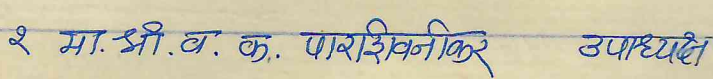 २ मा. श्री. व. क. पाराशिवनीकर उपाध्यक्ष